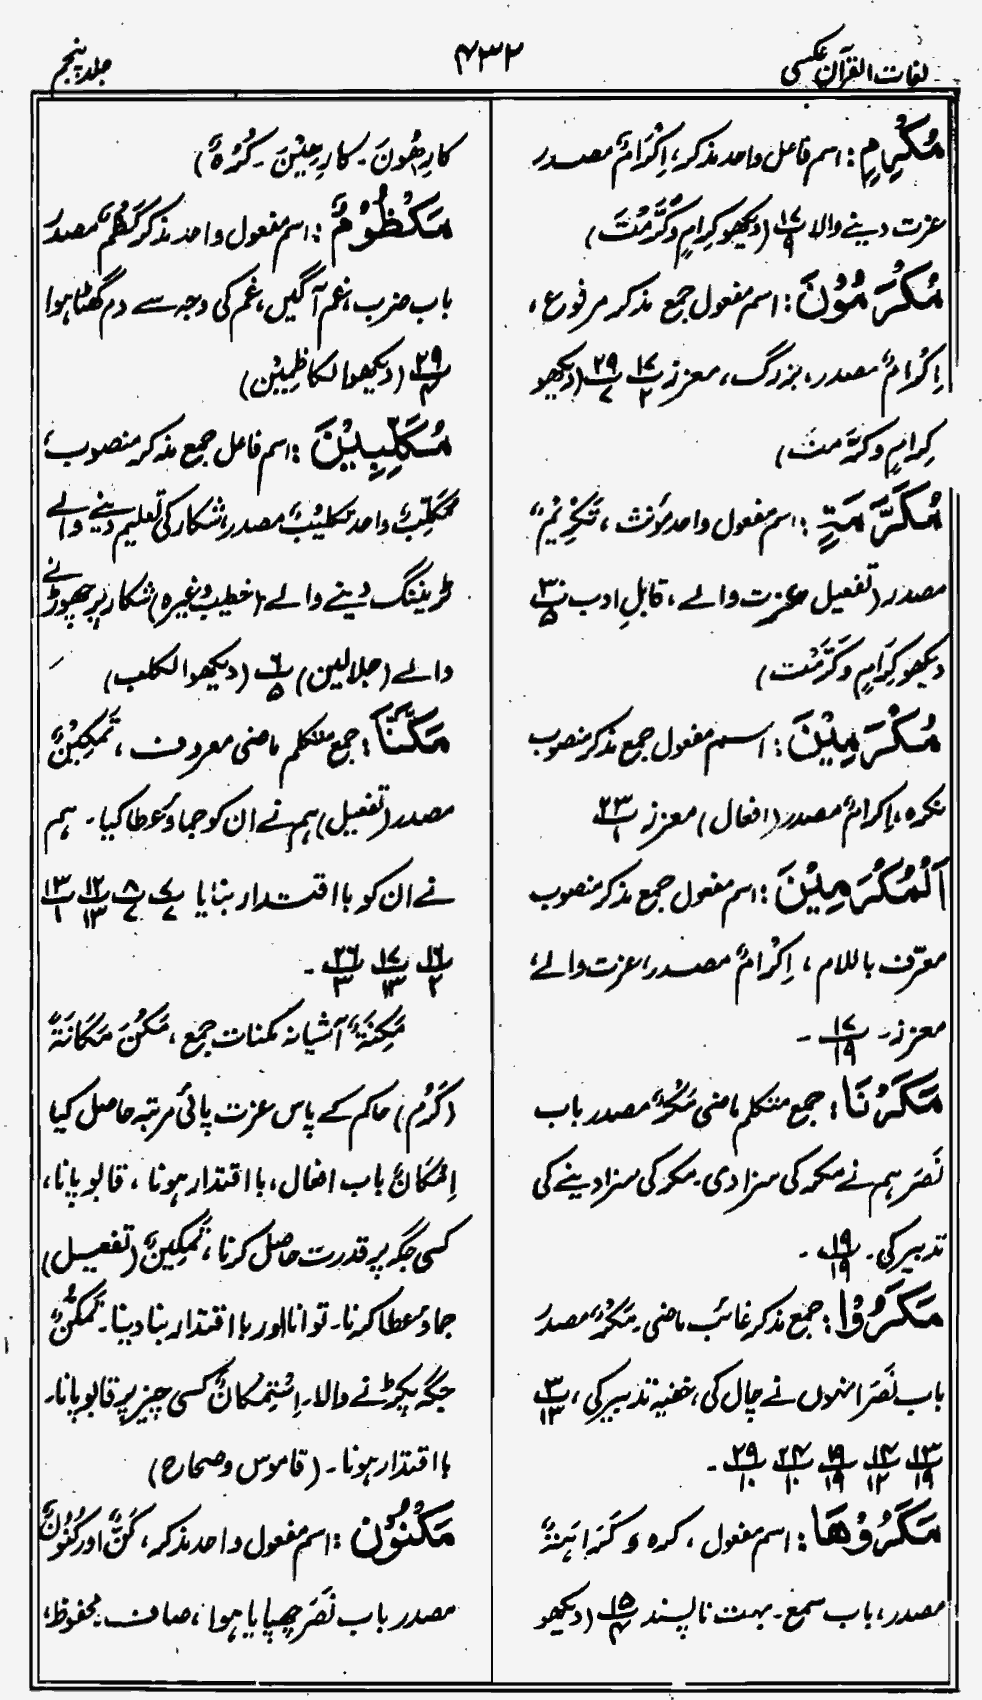 لغات القرآن عکسی
۴۳۲
جلد پنجم
مُکْرِمٍ: اسم فاعل واحد مذکر، اِکْرَامٌ مصدر
عزت دینے والا ۱۷/۹ (دیکھو کِرَامٍ وکَرَّمْتَ)
مُکْرَمُوْنَ: اسم مفعول جمع مذکر مرفوع،
اِکْرَامٌ مصدر، بزرگ، معزز ۱۷/۲ ۲۹/۷ (دیکھو
کِرَامٍ وکَرَّمتَ)
مُکَرَّمَةٍ: اسم مفعول واحد مؤنث، تَکْرِیْمٌ
مصدر (تفعیل) عزت والے، قابلِ ادب ۳۰/۵
دیکھو کِرَامٍ وکَرَّمْتَ)
مُکْرَمِیْنَ: اسم مفعول جمع مذکر منصوب
نکرہ، اِکرامٌ مصدر (افعال) معزز ۲۳/۱
اَلْمُکْرَمِیْنَ: اسم مفعول جمع مذکر منصوب
معرّف باللام، اِکْرَامٌ مصدر، عزت والے،
معزز۔ ۱۷/۱۹ ۔
مَکَرْنَا: جمع متکلم ماضی مَکْرٌ مصدر باب
نَصَرَ ہم نے مکر کی سزا دی۔ مکر کی سزا دینے کی
تدبیر کی۔ ۱۹/۱۹ ۔
مَکَرُوْا: جمع مذکر غائب ماضی۔ مَکْرٌ مصدر
باب نَصَرَ انہوں نے چال کی، خفیہ تدبیر کی، ۳/۱۳
۱۳/۱۹ ۱۴/۱۲ ۱۹/۱۹ ۲۴/۱۰ ۲۹/۱۰ ۔
مَکْرُوْھًا: اسم مفعول، کرہ و کَرَاہَةٌ
مصدر، باب سمع۔ بہت ناپسند ۱۵/۴ (دیکھو
کارِھُونَ۔ کارِھِیْنَ۔ کُرْہٌ)
مَکْظُوْمٌ: اسم مفعول واحد مذکر کَظْمٌ مصدر
باب ضرب، غم آگیں، غم کی وجہ سے دم گھٹا ہوا
۲۹/۴ (دیکھو الکاظِمِیْنَ)
مُکَلِّبِیْنَ: اسم فاعل جمع مذکر منصوب،
مُکَلِّبٌ واحد تکلیبٌ مصدر، شکار کی تعلیم دینے والے
ٹریننگ دینے والے (خطیب وغیرہ) شکار پر چھوڑنے
والے (جلالین) ۶/۵ (دیکھو الکلب)
مَکَّنَّا: جمع متکلم ماضی معروف، تَمکِیْنٌ
مصدر (تفعیل) ہم نے ان کو جماؤ عطا کیا۔ ہم
نے ان کو با اقتدار بنایا ۷/۷ ۸/۷ ۱۲/۱۳ ۱۳/۱
۱۶/۲ ۱۷/۱۳ ۲۶/۳ ۔
مَکِنَةٌ آشیانہ مکنات جمع، مَکُنَ مَکَانَةً
(کَرُمَ) حاکم کے پاس عزت پائی مرتبہ حاصل کیا
اِمْکَانٌ باب افعال، با اقتدار ہونا، قابو پانا،
کسی جگہ پر قدرت حاصل کرنا، تَمکِینٌ (تفعیل)
جماؤ عطا کرنا۔ توانا اور با اقتدار بنا دینا۔ تَمَکُّنٌ
جگہ پکڑنے والا۔ اِسْتِمْکَانٌ کسی چیز پر قابو پانا۔
با اقتدار ہونا۔ (قاموس وصحاح)
مَکْنُوْن: اسم مفعول واحد مذکر، کَنٌّ اور کُنُوْنٌ
مصدر باب نَصَرَ چھپایا ہوا، صاف۔ محفوظ،